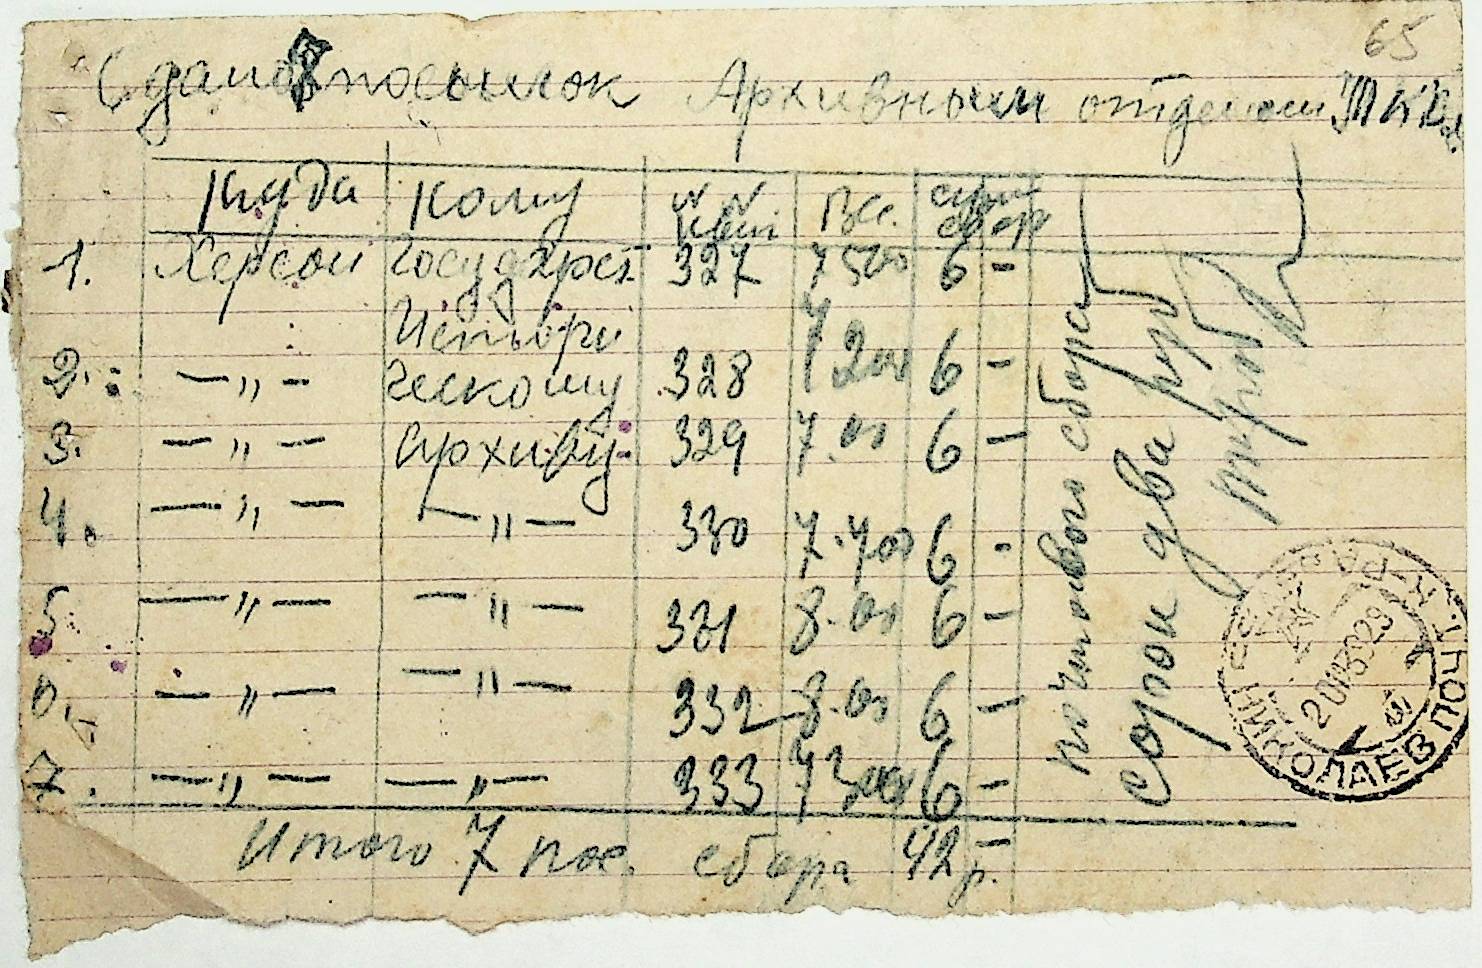 65
Сдано 7 посылок Архивным отделом
Куда Кому №№ квит Вес. сбор
1. Херсон Государст. 327 7 500 6 -
Истори
2. — " — ческому 328 7 200 6 -
3. — " — архиву 329 7.00 6 —
4. — " — — " — 330 7.400 6 -
5 — " — — " — 331 8.00 6 —
6. — " — — " — 332 8.00 6 —
7. — " — — " — 333 7 300 6 -
Итого 7 пос. сбора 42 р.
почтового сбора
сорок два руб
НИКОЛАЕВ ПОЧТ